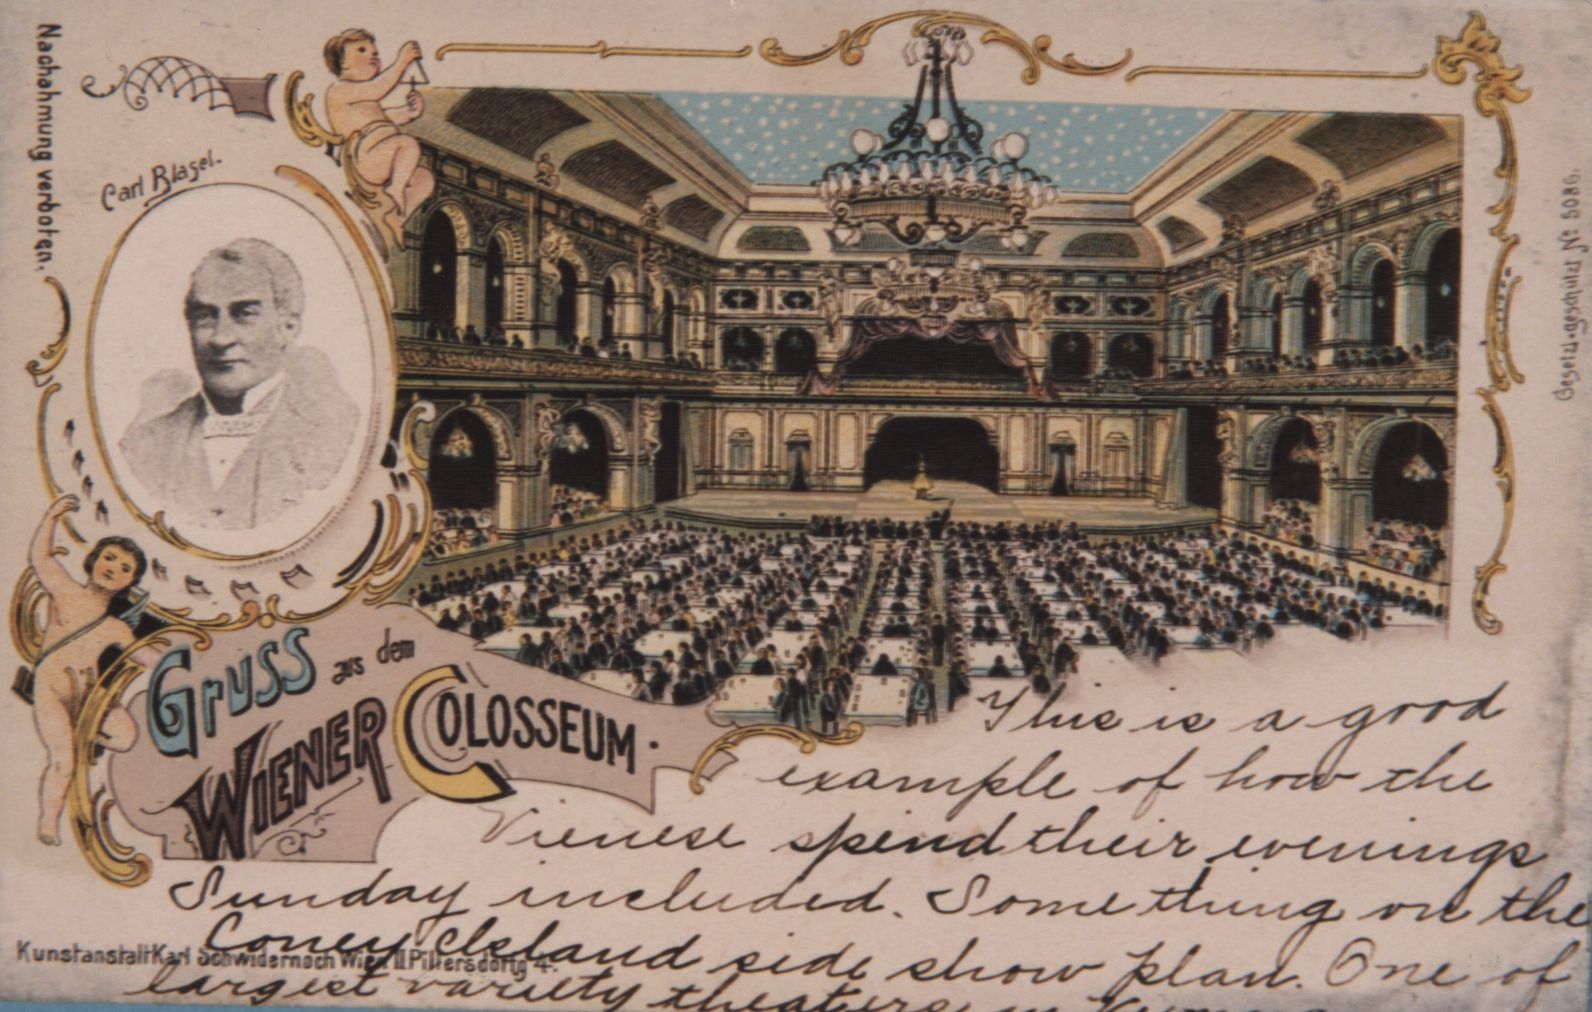 Nachahmung verboten.
Carl Blasel.
Gesetzl. geschützt Nº 5086.
Gruss aus dem
Wiener Colosseum.
This is a good
example of how the
Vienese spend their evenings
Sunday included. Something on the
Coney Island side show plan. One of
largest variety theaters in
Kunstanstalt Karl Schwidernoch Wien II Pillersdorfg 4.